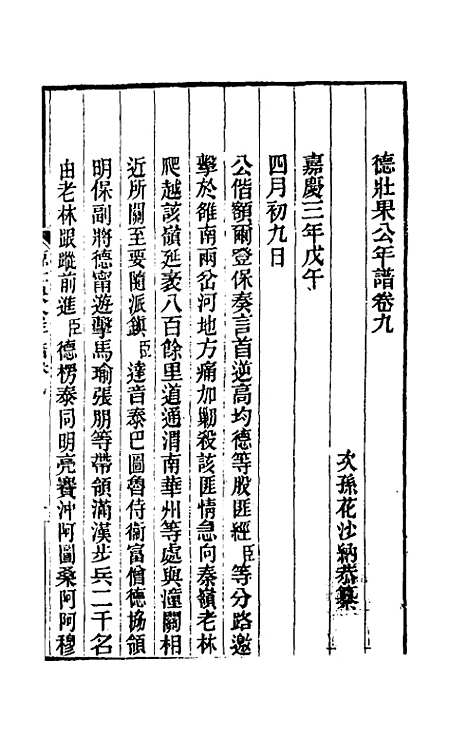 德壯果公年譜卷九
次孫花沙納恭纂
嘉慶三年戊午
四月初九日
公偕額爾登保奏言首逆高均德等股匪經臣等分路邀
擊於雒南兩岔河地方痛加剿殺該匪情急向秦嶺老林
爬越該嶺延袤八百餘里道通渭南華州等處與潼關相
近所關至要隨派鎮臣達音泰巴圖魯侍衛富僧德協領
明保副將德甯遊擊馬瑜張朋等帶領滿漢步兵二千名
由老林跟蹤前進臣德楞泰同明亮賽沖阿圖桑阿阿穆